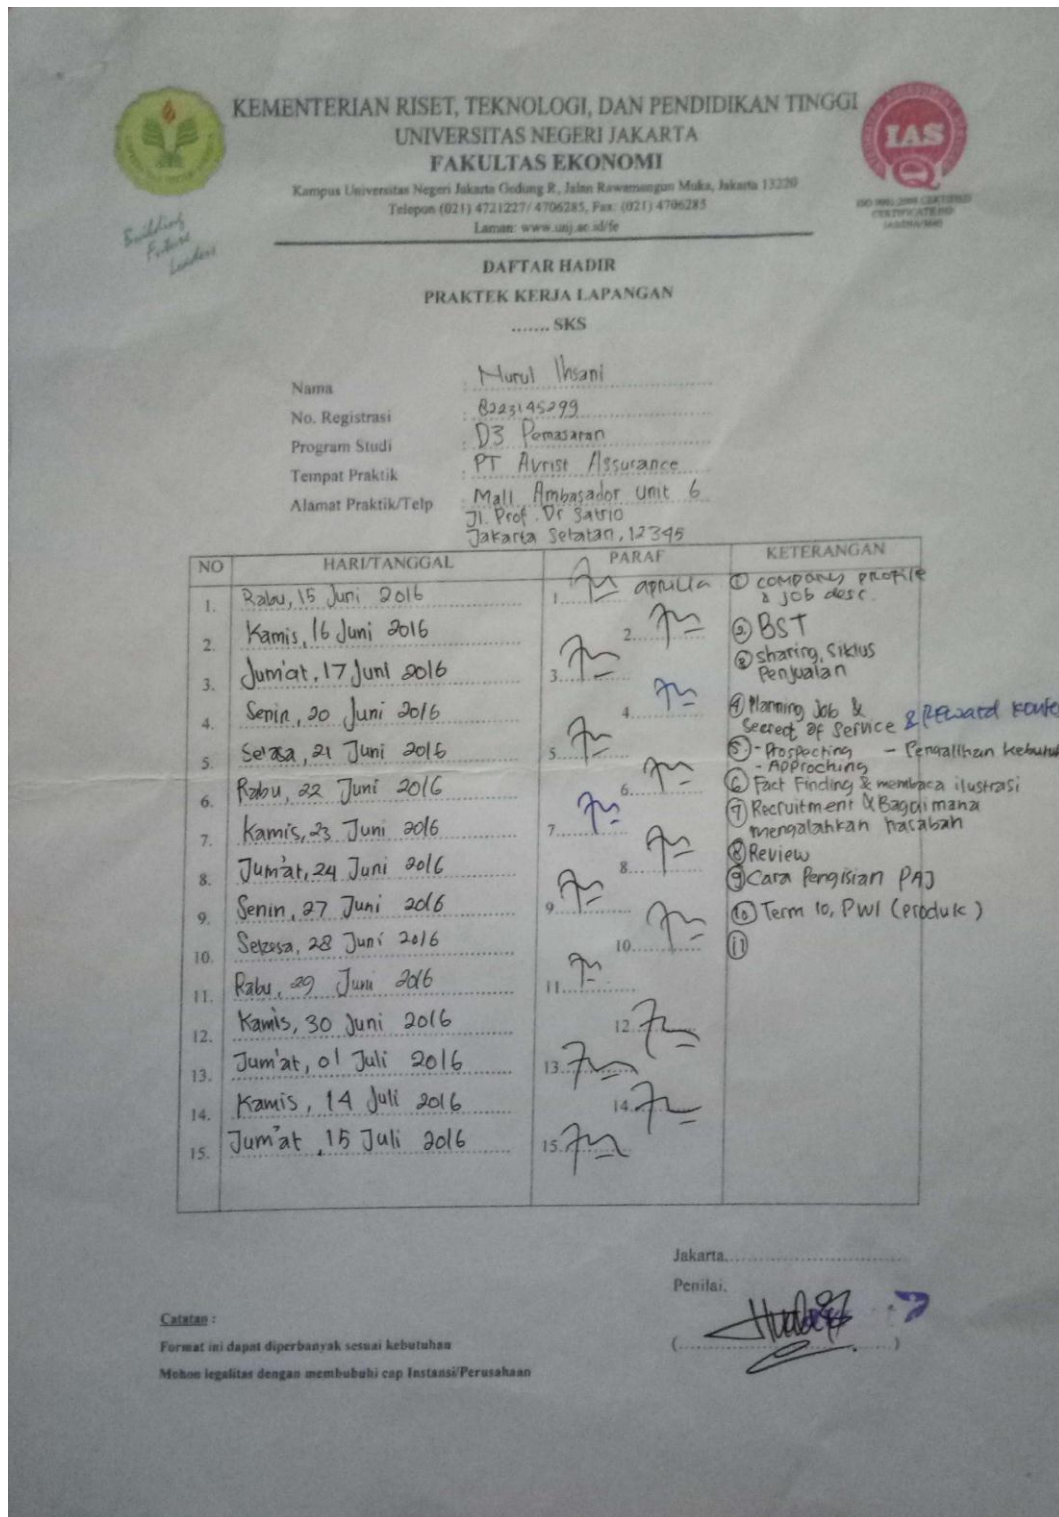 KEMENTERIAN RISET, TEKNOLOGI, DAN PENDIDIKAN TINGGI
UNIVERSITAS NEGERI JAKARTA
FAKULTAS EKONOMI
Kampus Universitas Negeri Jakarta Gedung R, Jalan Rawamangun Muka, Jakarta 13220
Telepon (021) 4721227/ 4706285, Fax: (021) 4706285
Laman: www.unj.ac.id/fe
Building
Future
Leaders
IAS
ISO 9001:2008 CERTIFIED
CERTIFICATE NO
DAFTAR HADIR
PRAKTEK KERJA LAPANGAN
....... SKS
Nama : Nurul Ihsani
No. Registrasi : 8223145299
Program Studi : D3 Pemasaran
Tempat Praktik : PT Avrist Assurance
Alamat Praktik/Telp : Mall Ambasador unit 6
Jl. Prof. Dr Satrio
Jakarta Selatan, 12345
NO HARI/TANGGAL PARAF KETERANGAN
1. Rabu, 15 Juni 2016 1. aprilia ① company profile
& job desc.
2. Kamis, 16 Juni 2016 2. ② BST
3. Jum'at, 17 Juni 2016 3. ③ sharing, siklus
Penjualan
4. Senin, 20 Juni 2016 4. ④ Planning Job &
Secreet of Service & Reward
5. Selasa, 21 Juni 2016 5. ⑤ - Prospecting - Pengalihan
- Approching
6. Rabu, 22 Juni 2016 6. ⑥ Fact Finding & membaca ilustrasi
7. Kamis, 23 Juni 2016 7. ⑦ Recruitment & Bagaimana
mengalahkan nasabah
8. Jum'at, 24 Juni 2016 8. ⑧ Review
9. Senin, 27 Juni 2016 9. ⑨ Cara Pengisian PAJ
10. Selasa, 28 Juni 2016 10. ⑩ Term 10, PWI (produk)
11. Rabu, 29 Juni 2016 11. ⑪
12. Kamis, 30 Juni 2016 12.
13. Jum'at, 01 Juli 2016 13.
14. Kamis, 14 Juli 2016 14.
15. Jum'at, 15 Juli 2016 15.
Jakarta..............................
Penilai,
(..............................)
Catatan :
Format ini dapat diperbanyak sesuai kebutuhan
Mohon legalitas dengan membubuhi cap Instansi/Perusahaan